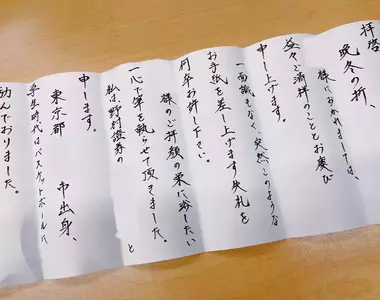 拝啓
晩冬の折、
様におかれましては、
益々ご清祥のこととお慶び
申し上げます。
一面識もなく、突然このような
お手紙を差し上げます失礼を
何卒お許し下さい。
様のご拝顔の栄に浴したい
一心で筆を執らせて頂きました。
私は、野村證券の と
申します。
東京都 市出身、
学生時代はバスケットボールに
励んでおりました。